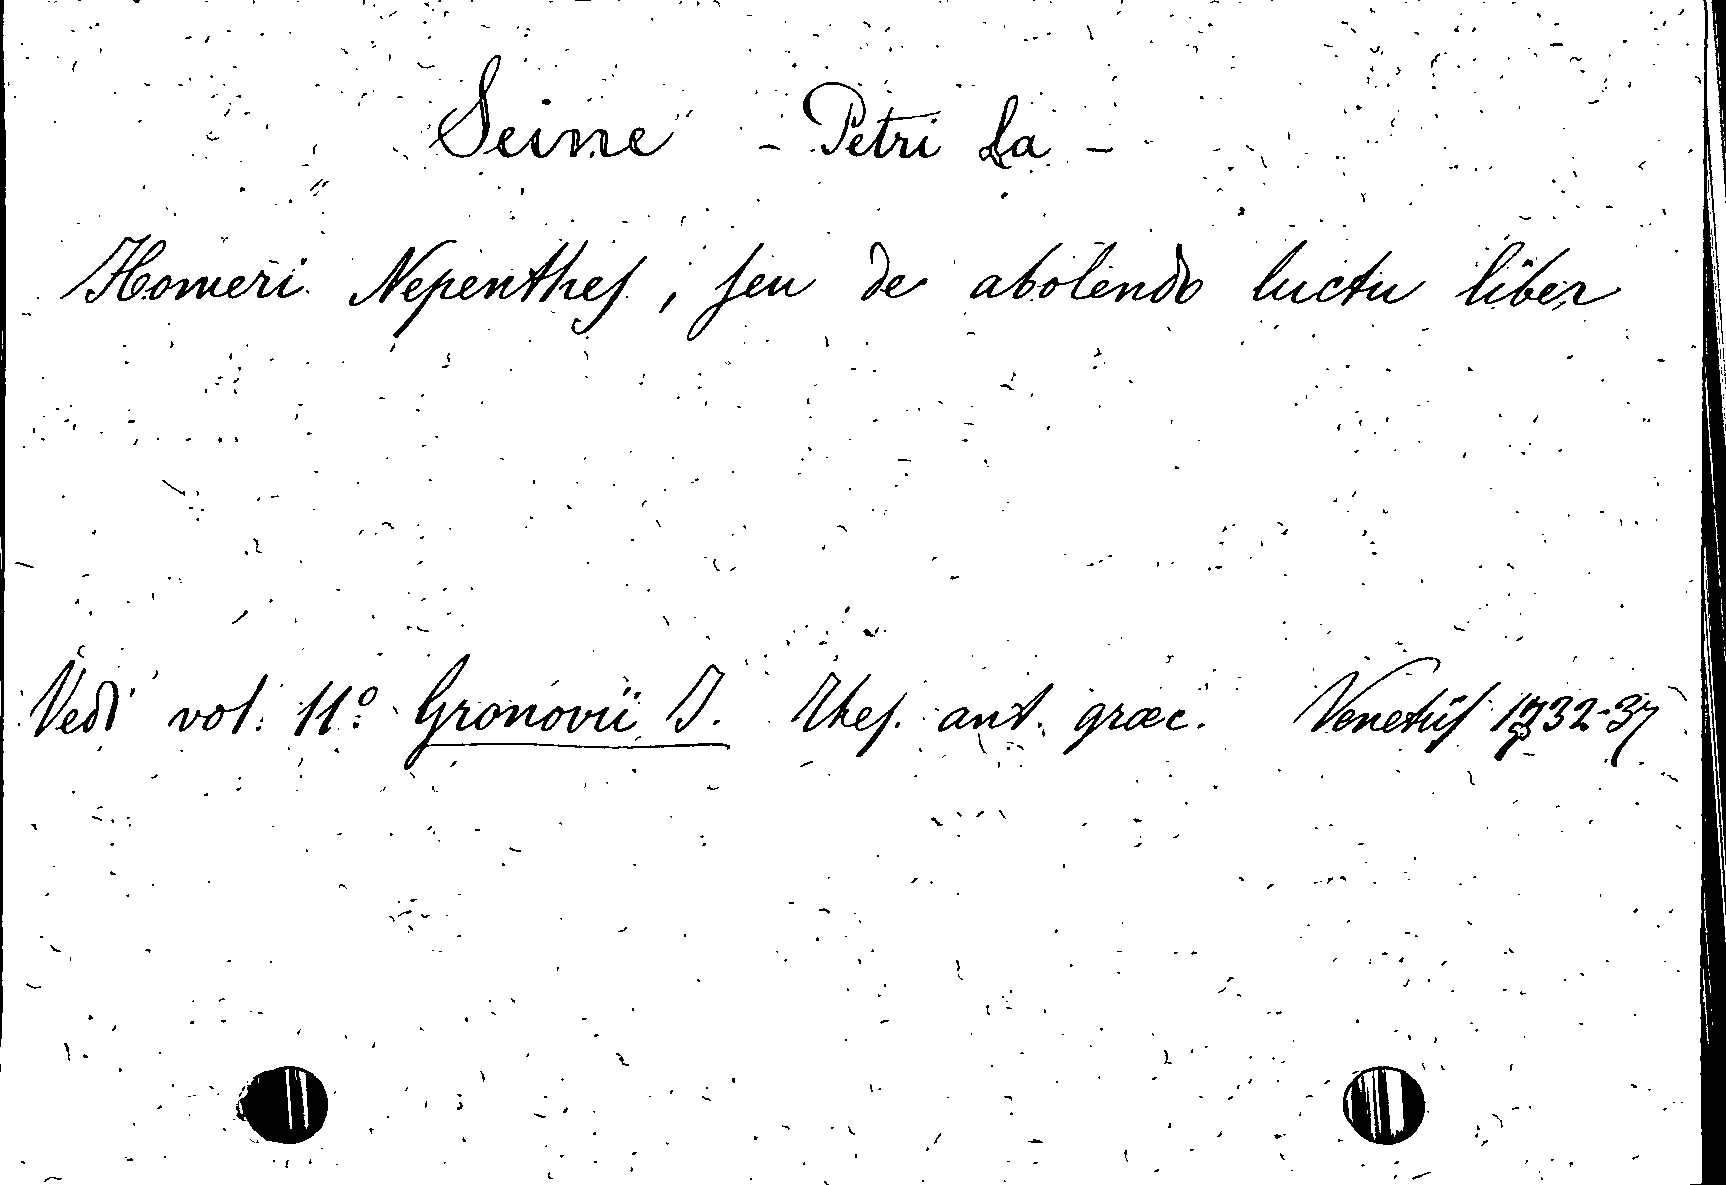 Seine - Petri La -
Homeri Nepenthes, seu de abolendo luctu liber
Vedi vol. 11.º Gronovii J. Thes. ant. graec. Venetiis 1732-37